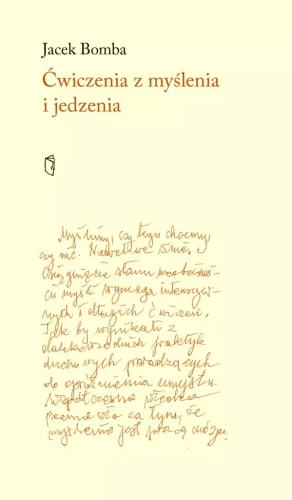 Jacek Bomba
Ćwiczenia z myślenia
i jedzenia
Myślimy, czy tego chcemy,
czy nie. Niewątpliwe
Osiągnięcie stanu
myśli wymaga intensyw-
nych i długich ćwiczeń.
Tak by wynikało z
dalekowschodnich praktyk
duchowych prowadzących
do opróżnienia umysłu.
Współczesna wiedza
za tym, że
myślenie jest pracą